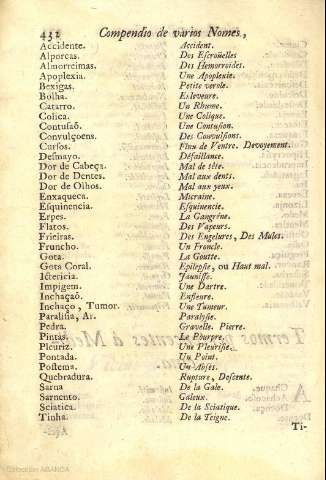 432 Compendio de varios Nomes,
Accidente. Accident.
Alporcas. Des Escroüelles
Almorreimas. Des Hemorroides.
Apoplexia. Une Apoplexie.
Bexigas. Petite varole.
Bolha. Eslevoure.
Catarro. Un Rhume.
Colica. Une Colique.
Contusaõ. Une Contusion.
Convulçoens. Des Convulsions.
Cursos. Flux de Ventre. Devoyement.
Desmayo. Défaillance.
Dor de Cabeça. Mal de tête.
Dor de Dentes. Mal aux dents.
Dor de Olhos. Mal aux yeux.
Enxaqueca. Micraine.
Esquinencia. Esquinencie.
Erpes. La Gangréne.
Flatos. Des Vapeurs.
Frieiras. Des Engelures, Des Mules.
Fruncho. Un Froncle.
Gota. La Goutte.
Gota Coral. Epilepsie, ou Haut mal.
Ictericia. Jaunisse.
Impigem. Une Dartre.
Inchaçaõ. Enfleure.
Inchaço, Tumor. Une Tumeur.
Paralisia, Ar. Paralysie.
Pedra. Gravelle. Pierre.
Pintas. Le Pourpre.
Pleuriz. Une Pleurisie.
Pontada. Un Point.
Postema. Un Abses.
Quebradura. Rupture, Descente.
Sarna De la Gale.
Sarnento. Galeux.
Sciatica. De la Sciatique.
Tinha. De la Teigne.
Ti-
Colección ABANCA